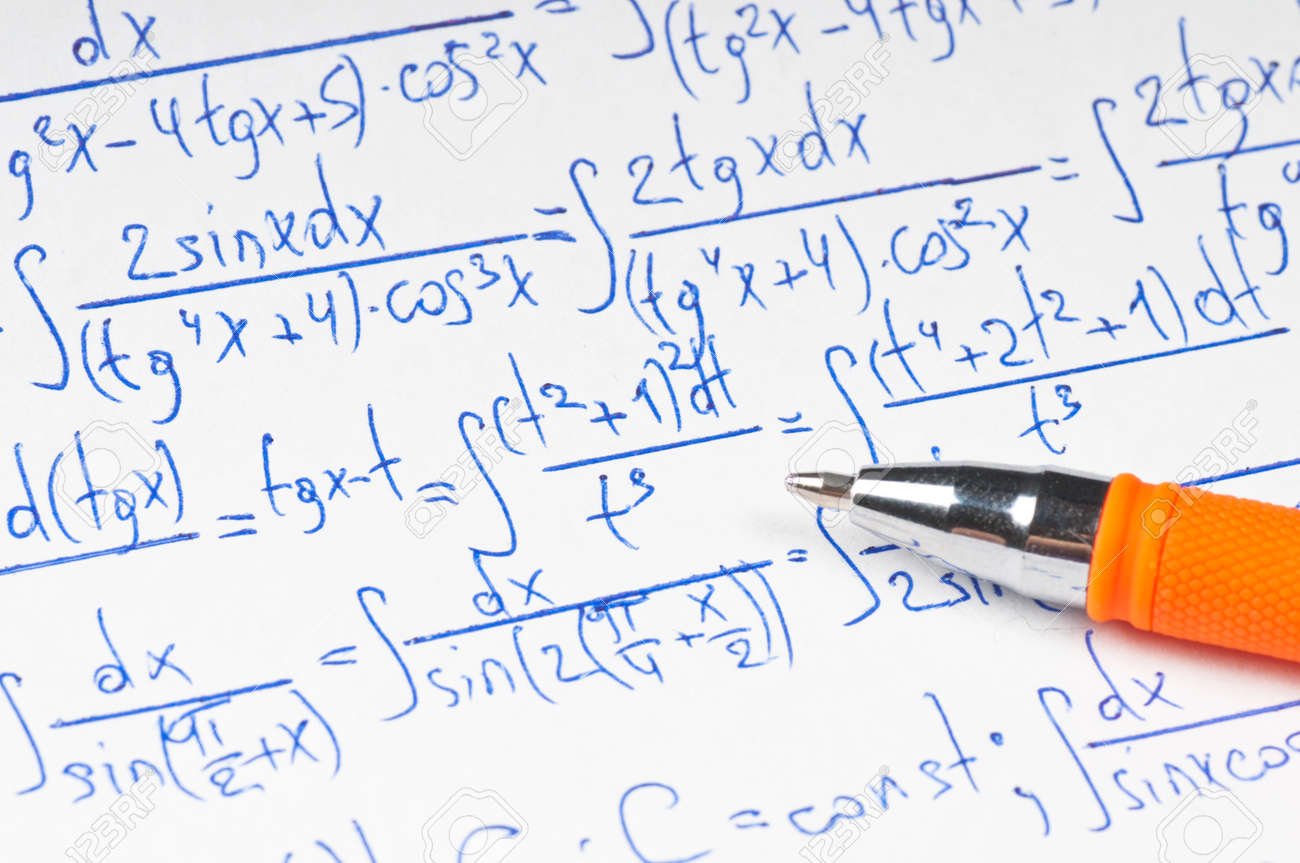 dx = ∫(tg²x-4tgx+5)
g²x-4tgx+5)·cos²x
∫ 2sinxdx / (tg⁴x+4)·cos³x = ∫ 2tgxdx / (tg⁴x+4)·cos²x = ∫ 2tgx / tg
d(tgx) = tgx-t = ∫ (t²+1)²dt / t³ = ∫ (t⁴+2t²+1)dt / t³
∫ dx / sin(π/2+x) = ∫ dx / sin(2(π/4+x/2)) = ∫ / 2sin
C = const; ∫ dx / sinxcos
123RF